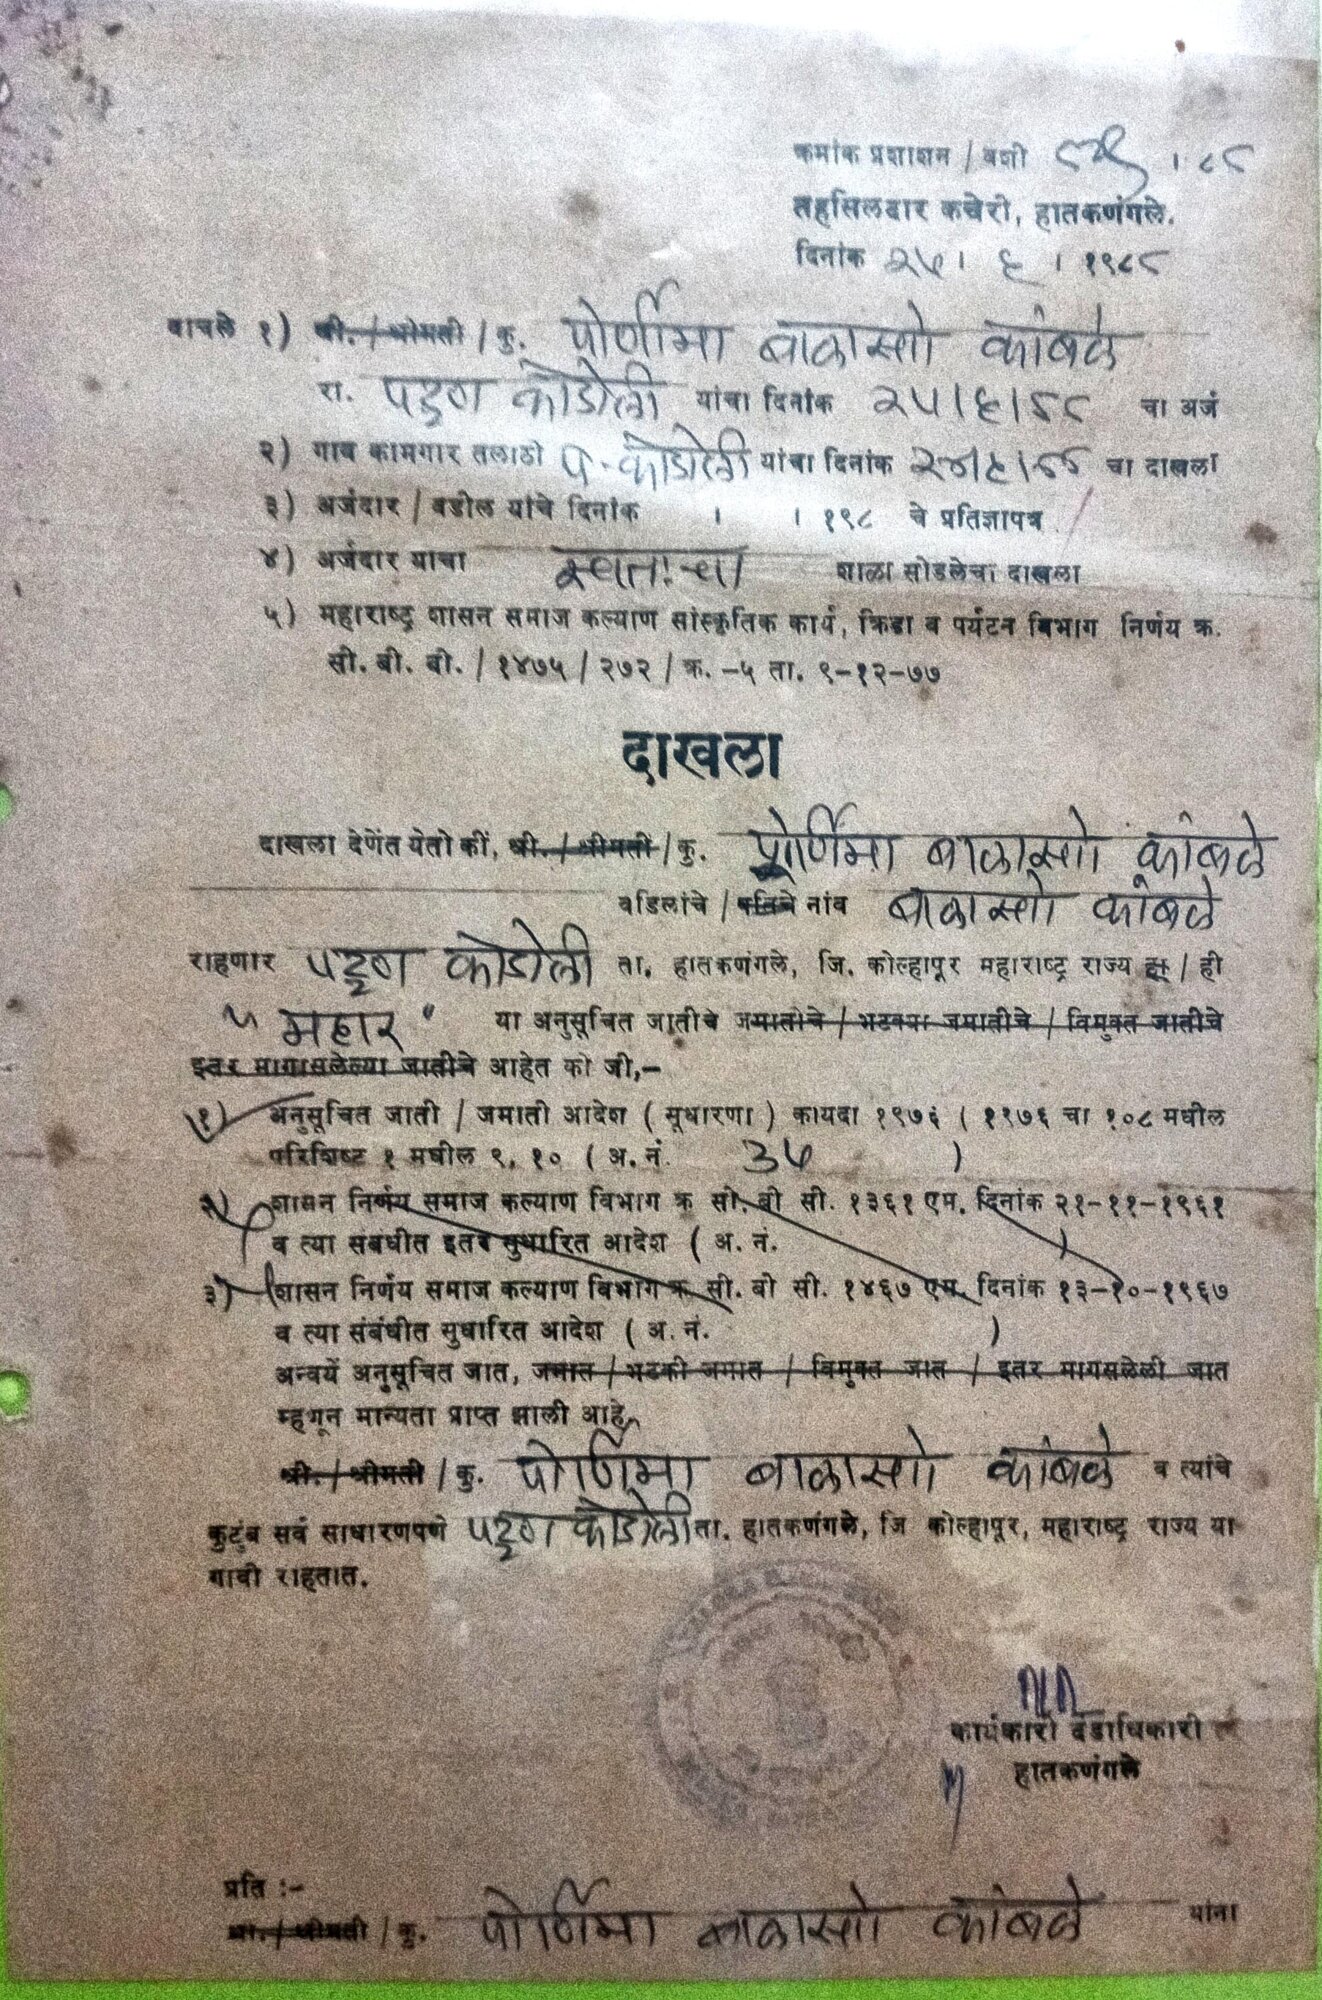 कमांक प्रशाशन / वशी । ८८
तहसिलदार कचेरी, हातकणंगले.
दिनांक २५ । ६ । १९८८
वाचले १) श्री. / श्रीमती / कु. पोर्णिमा बाळासो कांबळे
रा. पट्टण कोडोली यांचा दिनांक २५।६।८८ चा अर्ज
२) गाव कामगार तलाठी प. कोडोली यांचा दिनांक २४।६।८८ चा दाखला
३) अर्जदार / वडील यांचे दिनांक । । १९८ चे प्रतिज्ञापत्र
४) अर्जदार याचा स्वतःचा शाळा सोडलेचा दाखला
५) महाराष्ट्र शासन समाज कल्याण सांस्कृतिक कार्य, क्रिडा व पर्यटन विभाग निर्णय क्र.
सी. बी. बी. / १४७५ / २७२ / क्र. -५ ता. ९-१२-७७
दाखला
दाखला देणेंत येतो कीं, श्री. / श्रीमती / कु. पोर्णिमा बाळासो कांबळे
वडिलांचे / पतिचे नांव बाळासो कांबळे
राहणार पट्टण कोडोली ता. हातकणंगले, जि. कोल्हापूर महाराष्ट्र राज्य हा / ही
" महार " या अनुसूचित जातीचे जमातीचे / भटक्या जमातीचे / विमुक्त जातीचे
इतर मागासलेल्या जातीचे आहेत की जी,-
१) अनुसूचित जाती / जमाती आदेश ( सूधारणा ) कायदा १९७६ ( १९७६ चा १०८ मधील
परिशिष्ट १ मधील ९, १० ( अ. नं. ३५ )
२) शासन निर्णय समाज कल्याण विभाग क्र सी. बी सी. १३६१ एम. दिनांक २१-११-१९६१
व त्या संबंधीत इतर सुधारित आदेश ( अ. नं. )
३) शासन निर्णय समाज कल्याण विभाग क्र. सी. बी सी. १४६७ एम. दिनांक १३-१०-१९६७
व त्या संबंधीत सुधारित आदेश ( अ. नं. )
अन्वयें अनुसूचित जात, जमात / भटकी जमात / विमुक्त जात / इतर मागसलेली जात
म्हणून मान्यता प्राप्त झाली आहे.
श्री. / श्रीमती / कु. पोर्णिमा बाळासो कांबळे व त्यांचे
कुटुंब सर्व साधारणपणे पट्टण कोडोली ता. हातकणंगले, जि कोल्हापूर, महाराष्ट्र राज्य या
गावी राहतात.
कार्यकारी दंडाधिकारी
हातकणंगले
प्रति :-
श्री. / श्रीमती / कु. पोर्णिमा बाळासो कांबळे यांना